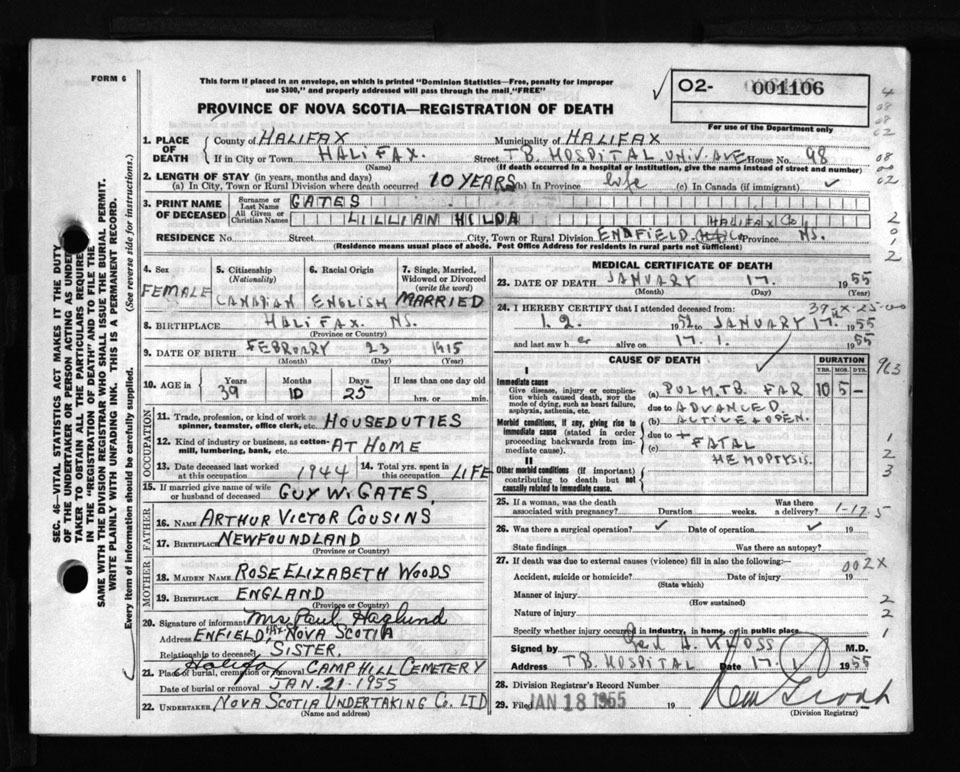 FORM 6
This form if placed in an envelope, on which is printed "Dominion Statistics—Free, penalty for improper
use $300," and properly addressed will pass through the mail "FREE"
PROVINCE OF NOVA SCOTIA—REGISTRATION OF DEATH
02- 001106
For use of the Department only
SEC. 46—VITAL STATISTICS ACT MAKES IT THE DUTY
OF THE UNDERTAKER OR PERSON ACTING AS UNDER-
TAKER TO OBTAIN ALL THE PARTICULARS REQUIRED
IN THE "REGISTRATION OF DEATH" AND TO FILE THE
SAME WITH THE DIVISION REGISTRAR WHO SHALL ISSUE THE BURIAL PERMIT.
WRITE PLAINLY WITH UNFADING INK. THIS IS A PERMANENT RECORD.
Every item of information should be carefully supplied. (See reverse side for instructions.)
1. PLACE OF DEATH County of HALIFAX Municipality of HALIFAX
If in City or Town HALIFAX. Street TB. HOSPITAL. UNIV. AVE House No. 98
(Name) (If death occurred in a hospital or institution, give the name instead of street and number)
2. LENGTH OF STAY (in years, months and days)
(a) In City, Town or Rural Division where death occurred 10 YEARS (b) In Province life (c) In Canada (if immigrant)
3. PRINT NAME OF DECEASED Surname or Last Name GATES
All Given or Christian Names LILLIAN HILDA HALIFAX Co
RESIDENCE No. Street City, Town or Rural Division ENFIELD Province NS.
(Residence means usual place of abode. Post Office Address for residents in rural parts not sufficient)
4. Sex FEMALE
5. Citizenship (Nationality) CANADIAN
6. Racial Origin ENGLISH
7. Single, Married, Widowed or Divorced (write the word) MARRIED
8. BIRTHPLACE HALIFAX. NS.
(Province or Country)
9. DATE OF BIRTH FEBRUARY 23 1915
(Month) (Day) (Year)
10. AGE in Years 39 Months 10 Days 25 If less than one day old
hrs. or min.
OCCUPATION
11. Trade, profession, or kind of work as spinner, teamster, office clerk, etc. HOUSEDUTIES
12. Kind of industry or business, as cotton-mill, lumbering, bank, etc. AT HOME
13. Date deceased last worked at this occupation 1944 14. Total yrs. spent in this occupation LIFE
15. If married give name of wife or husband of deceased GUY W. GATES.
FATHER
16. NAME ARTHUR VICTOR COUSINS
17. BIRTHPLACE NEWFOUNDLAND
(Province or Country)
MOTHER
18. MAIDEN NAME ROSE ELIZABETH WOODS
19. BIRTHPLACE ENGLAND
(Province or Country)
20. Signature of informant Mrs Paul Haglund
Address ENFIELD NOVA SCOTIA
Relationship to deceased SISTER.
21. Place of burial, cremation or removal Halifax CAMP HILL CEMETERY
Date of burial or removal JAN. 21-1955
22. UNDERTAKER NOVA SCOTIA UNDERTAKING Co. LTD
(Name and address)
MEDICAL CERTIFICATE OF DEATH
23. DATE OF DEATH JANUARY 17. 1955
(Month) (Day) (Year)
24. I HEREBY CERTIFY that I attended deceased from:
1. 2. to JANUARY 17. 1955
and last saw her alive on 17. 1. 1955
CAUSE OF DEATH DURATION
YRS. MOS. DYS.
I
Immediate cause
Give disease, injury or complication which caused death, NOT the mode of dying, such as heart failure, asphyxia, asthenia, etc.
(a) PULM. TB. FAR 10 5 –
due to ADVANCED.
Morbid conditions, if any, giving rise to immediate cause (stated in order proceeding backwards from immediate cause).
(b) ACTIVE + OPEN.
due to +
(c) FATAL
HEMOPTYSIS.
II
Other morbid conditions (if important) contributing to death but not causally related to immediate cause.
25. If a woman, was the death associated with pregnancy? Duration weeks. Was there a delivery?
26. Was there a surgical operation? Date of operation 19
State findings Was there an autopsy?
27. If death was due to external causes (violence) fill in also the following:
Accident, suicide or homicide? Date of injury 19
(State which)
Manner of injury
(How sustained)
Nature of injury
Specify whether injury occurred in industry, in home, or in public place.
Signed by M.D.
Address TB. HOSPITAL Date 17. 1 1955
28. Division Registrar's Record Number
29. Filed JAN 18 1955 19
(Division Registrar)
963
002X